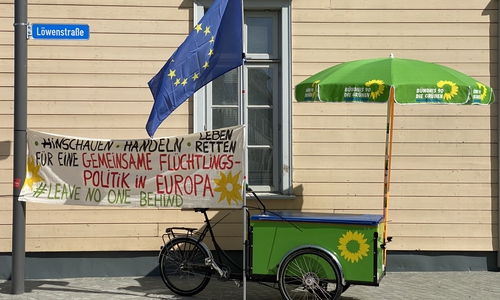 Löwenstraße
HINSCHAUEN · HANDELN · LEBEN RETTEN
FÜR EINE GEMEINSAME FLÜCHTLINGS-
POLITIK IN EUROPA
#LEAVE NO ONE BEHIND
BÜNDNIS 90
DIE GRÜNEN
BÜNDNIS 90
DIE GRÜNEN